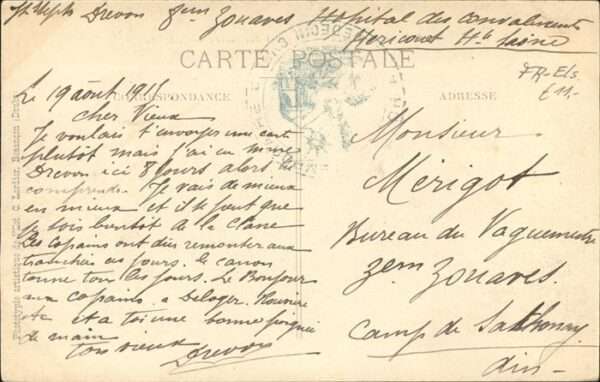 Drevon 8em Zouaves Hôpital des convalescents
Héricourt Hte Saône
CARTE POSTALE
CORRESPONDANCE
ADRESSE
FR-Els
£11,-
Le 19 août 1915
cher Vieux
Je voulais t'envoyer une carte
plutôt mais j'ai eu mme
Drevon ici 8 jours alors
comprends. Je vais de mieux
en mieux et il se peut que
je sois bientôt de la classe
les copains ont du remonter aux
tranchées ces jours. le canon
tonne tous les jours. Le Bonjour
aux copains. a Deloger.
et a toi une bonne poignée
de main
ton vieux
Drevon
Monsieur
Mérigot
Bureau du Vaguemestre
3em Zouaves.
Camp de Sathonay
Ain
Phototypie artistique de l'Est C. Lardier, Besançon (Doubs)